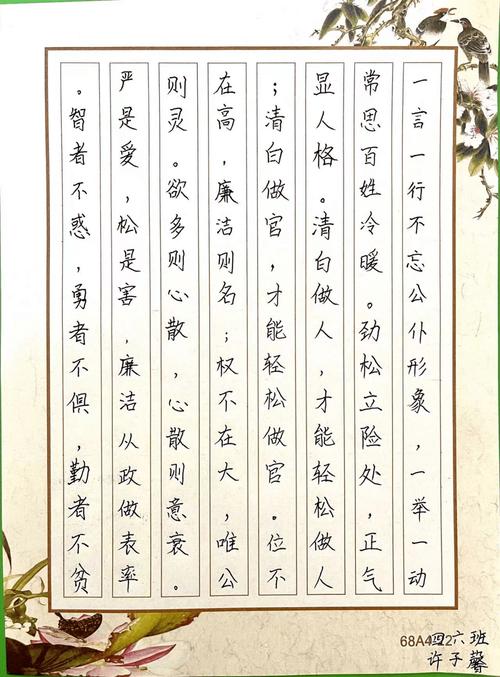 一言一行不忘公仆形象，一举一动
常思百姓冷暖。劲松立险处，正气
显人格。清白做人，才能轻松做人
；清白做官，才能轻松做官。位不
在高，廉洁则名；权不在大，唯公
则灵。欲多则心散，心散则意衰。
严是爱，松是害，廉洁从政做表率
。智者不惑，勇者不俱，勤者不贫
四六班
许子馨